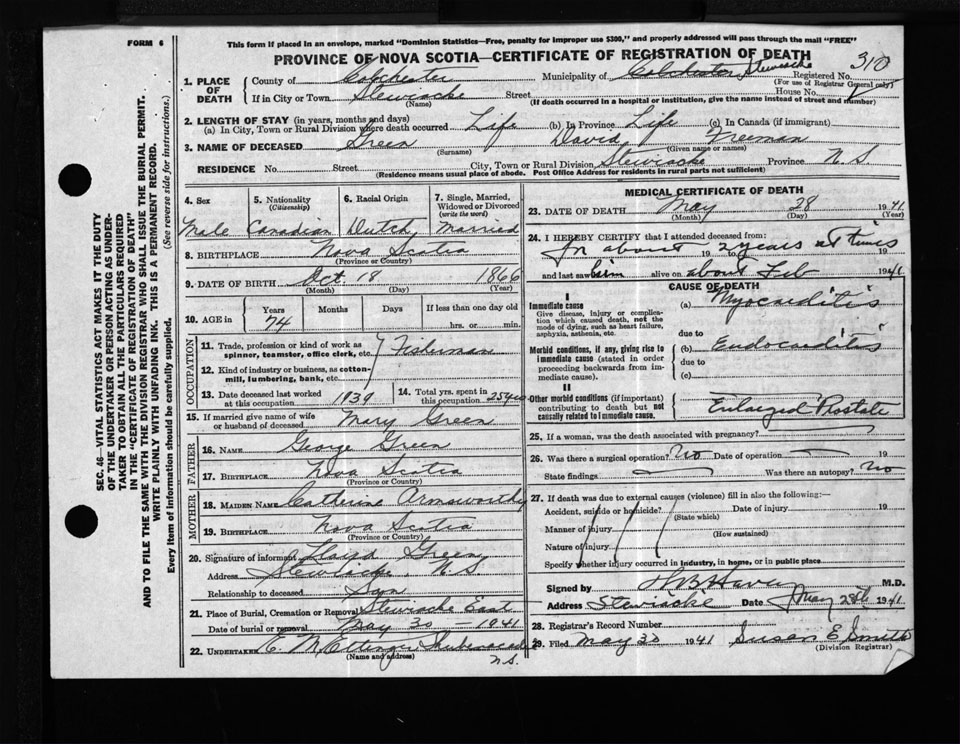 FORM 6
This form if placed in an envelope, marked "Dominion Statistics—Free, penalty for improper use $300," and properly addressed will pass through the mail "FREE"
PROVINCE OF NOVA SCOTIA—CERTIFICATE OF REGISTRATION OF DEATH
310
1. PLACE OF DEATH
County of Colchester Municipality of Colchester, Stewiacke Registered No.
(For use of Registrar General only)
If in City or Town Stewiacke Street House No.
(Name) (If death occurred in a hospital or institution, give the name instead of street and number)
2. LENGTH OF STAY (in years, months and days)
(a) In City, Town or Rural Division where death occurred Life (b) In Province Life (c) In Canada (if immigrant)
3. NAME OF DECEASED Green David Freeman
(Surname) (Given name or names)
RESIDENCE No. Street City, Town or Rural Division Stewiacke Province N.S.
(Residence means usual place of abode. Post Office Address for residents in rural parts not sufficient)
4. Sex 5. Nationality (Citizenship) 6. Racial Origin 7. Single, Married, Widowed or Divorced (write the word)
Male Canadian Dutch Married
8. BIRTHPLACE Nova Scotia
(Province or Country)
9. DATE OF BIRTH Oct. 18 1866
(Month) (Day) (Year)
10. AGE in Years Months Days If less than one day
74 hrs. or min.
OCCUPATION
11. Trade, profession or kind of work as spinner, teamster, office clerk, etc. Fisherman
12. Kind of industry or business, as cotton-mill, lumbering, bank, etc.
13. Date deceased last worked at this occupation 1939 14. Total yrs. spent in this occupation 25 yrs
15. If married give name of wife or husband of deceased Mary Green
FATHER
16. NAME George Green
17. BIRTHPLACE Nova Scotia
(Province or Country)
MOTHER
18. MAIDEN NAME Catherine Armsworthy
19. BIRTHPLACE Nova Scotia
(Province or Country)
20. Signature of informant Lloyd Green
Address Stewiacke, N.S.
Relationship to deceased Son
21. Place of Burial, Cremation or Removal Stewiacke East
Date of burial or removal May 30 – 1941
22. UNDERTAKER M Ettinger Shubenacadie
(Name and address) N.S.
MEDICAL CERTIFICATE OF DEATH
23. DATE OF DEATH May 28 1941
(Month) (Day) (Year)
24. I HEREBY CERTIFY that I attended deceased from:
In about 19 2 years at times
and last saw him alive on about Feb 1941
CAUSE OF DEATH
I
Immediate cause (a) Myocarditis
Give disease, injury or complication which caused death, not the mode of dying, such as heart failure, asphyxia, asthenia, etc. due to
Morbid conditions, if any, giving rise to immediate cause (stated in order proceeding backwards from immediate cause). (b) Endocarditis
due to
(c)
II
Other morbid conditions (if important) contributing to death but not causally related to immediate cause. Enlarged Prostate
25. If a woman, was the death associated with pregnancy?
26. Was there a surgical operation? No Date of operation 19
State findings Was there an autopsy? No
27. If death was due to external causes (violence) fill in also the following:
Accident, suicide or homicide? Date of injury 19
(State which)
Manner of injury
(How sustained)
Nature of injury
Specify whether injury occurred in industry, in home, or in public place
Signed by M.D.
Address Stewiacke Date May 28th 1941
28. Registrar's Record Number
29. Filed May 30 1941 Susan E Smith
(Division Registrar)
SEC. 46—VITAL STATISTICS ACT MAKES IT THEE DUTY
OF THE UNDERTAKER OR PERSON ACTING AS UNDER-
TAKER TO OBTAIN ALL THE PARTICULARS REQUIRED
IN THE "CERTIFICATE OF REGISTRATION OF DEATH"
AND TO FILE THE SAME WITH THE DIVISION REGISTRAR WHO SHALL ISSUE THE BURIAL PERMIT.
WRITE PLAINLY WITH UNFADING INK. THIS IS A PERMANENT RECORD.
Every item of information should be carefully supplied. (See reverse side for instructions.)